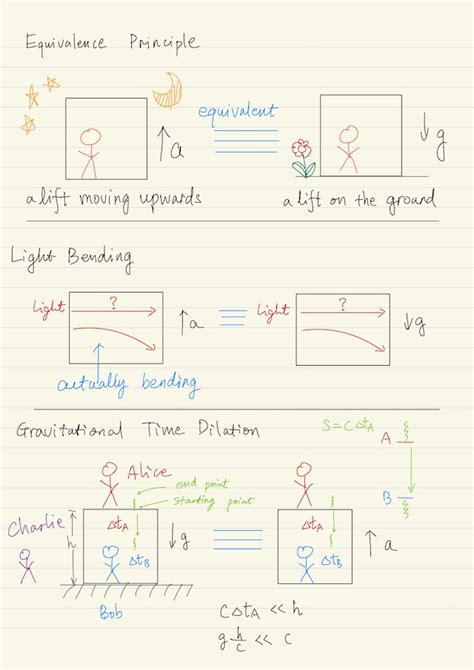 Equivalence Principle
equivalent
↑a
↓g
a lift moving upwards
a lift on the ground
Light Bending
Light
?
↑a
Light
?
↓g
actually bending
Gravitational Time Dilation
S=CΔtA
A
B
Alice
end point
starting point
Charlie
h
ΔtA
ΔtB
↓g
ΔtA
ΔtB
↑a
Bob
CΔtA << h
g h/c << c